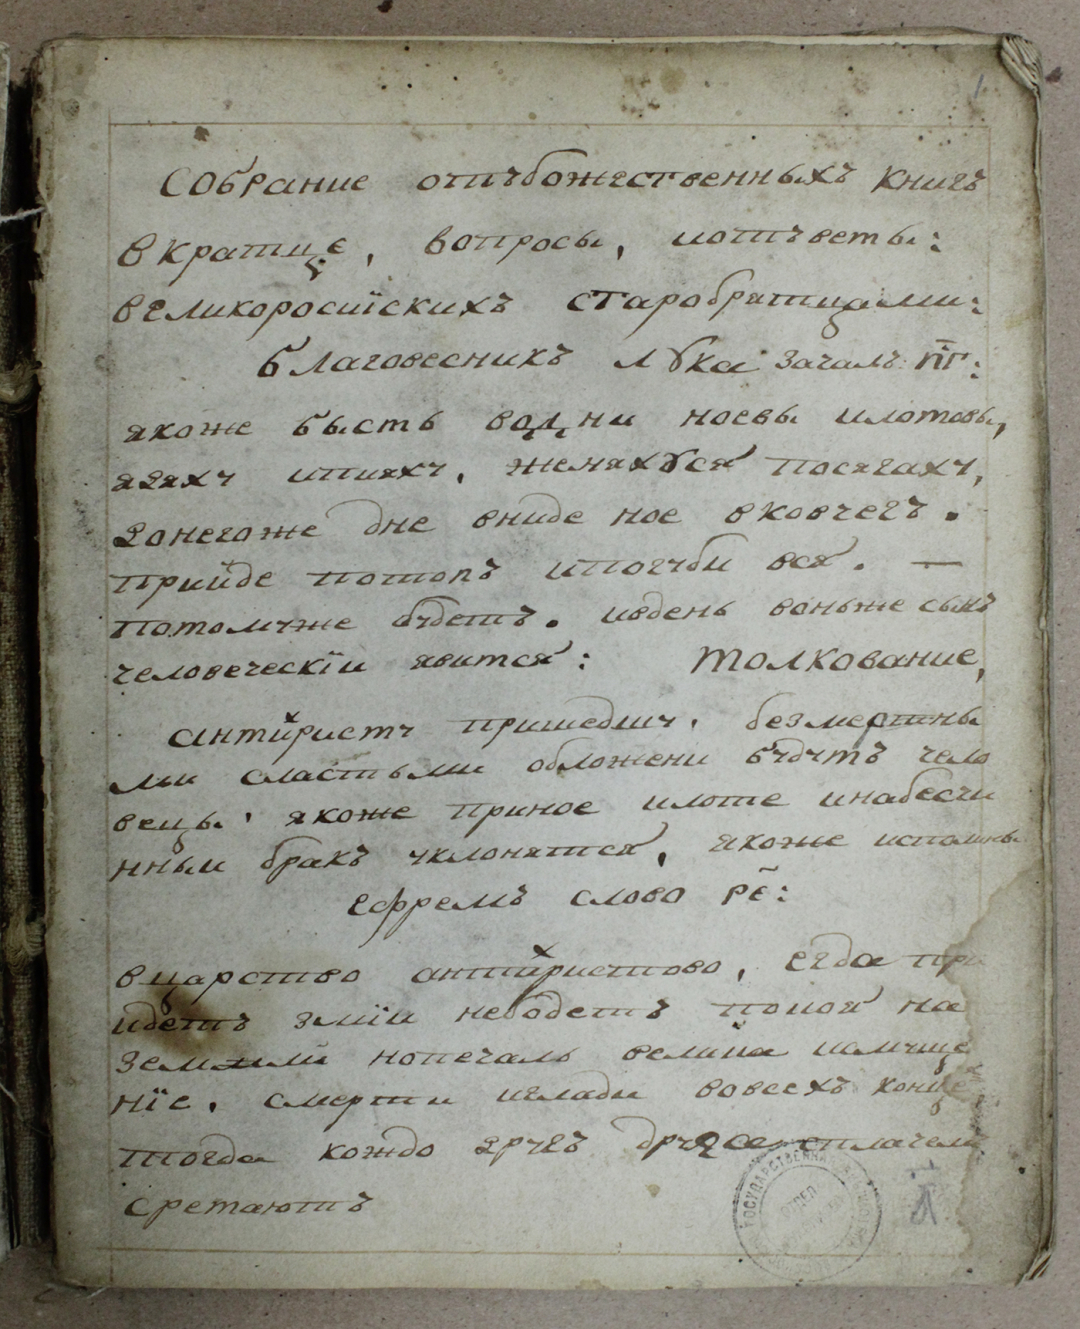 1
Собрание отъбожественныхъ книгъ
вкратце, вопросы, иотъветы:
великоросїискихъ старобрятцами:
благовесникъ лꙋка зачалъ п҃г:
якоже бысть водни ноевы илотовы,
ядяхч ипияхч, женяхꙋся посягахч,
донегоже дне вниде ное вковчегъ.
прииде потопъ ипогчби вся. —
потомчже бчдетъ. ивдень воньже сынъ
человеческїи явится: Толкование,
антихристъ пришедшч. безместны
ми сластьми обложени бчдчтъ чело
вецы. якоже приное илоте инабесчи
нныи бракъ чклонятся, якоже исполины
ефремъ слово р҃е:
вцарство антихристово, егда при
идетъ змїи небодетъ покоя на
земли нопечаль велика исмчще
нїе. смерти иглади вовсехъ конце
тогда кождо дрчгъ дрчга сплачем
сретаютъ
ГОСУДАРСТВЕННАЯ
ОТДЕЛ